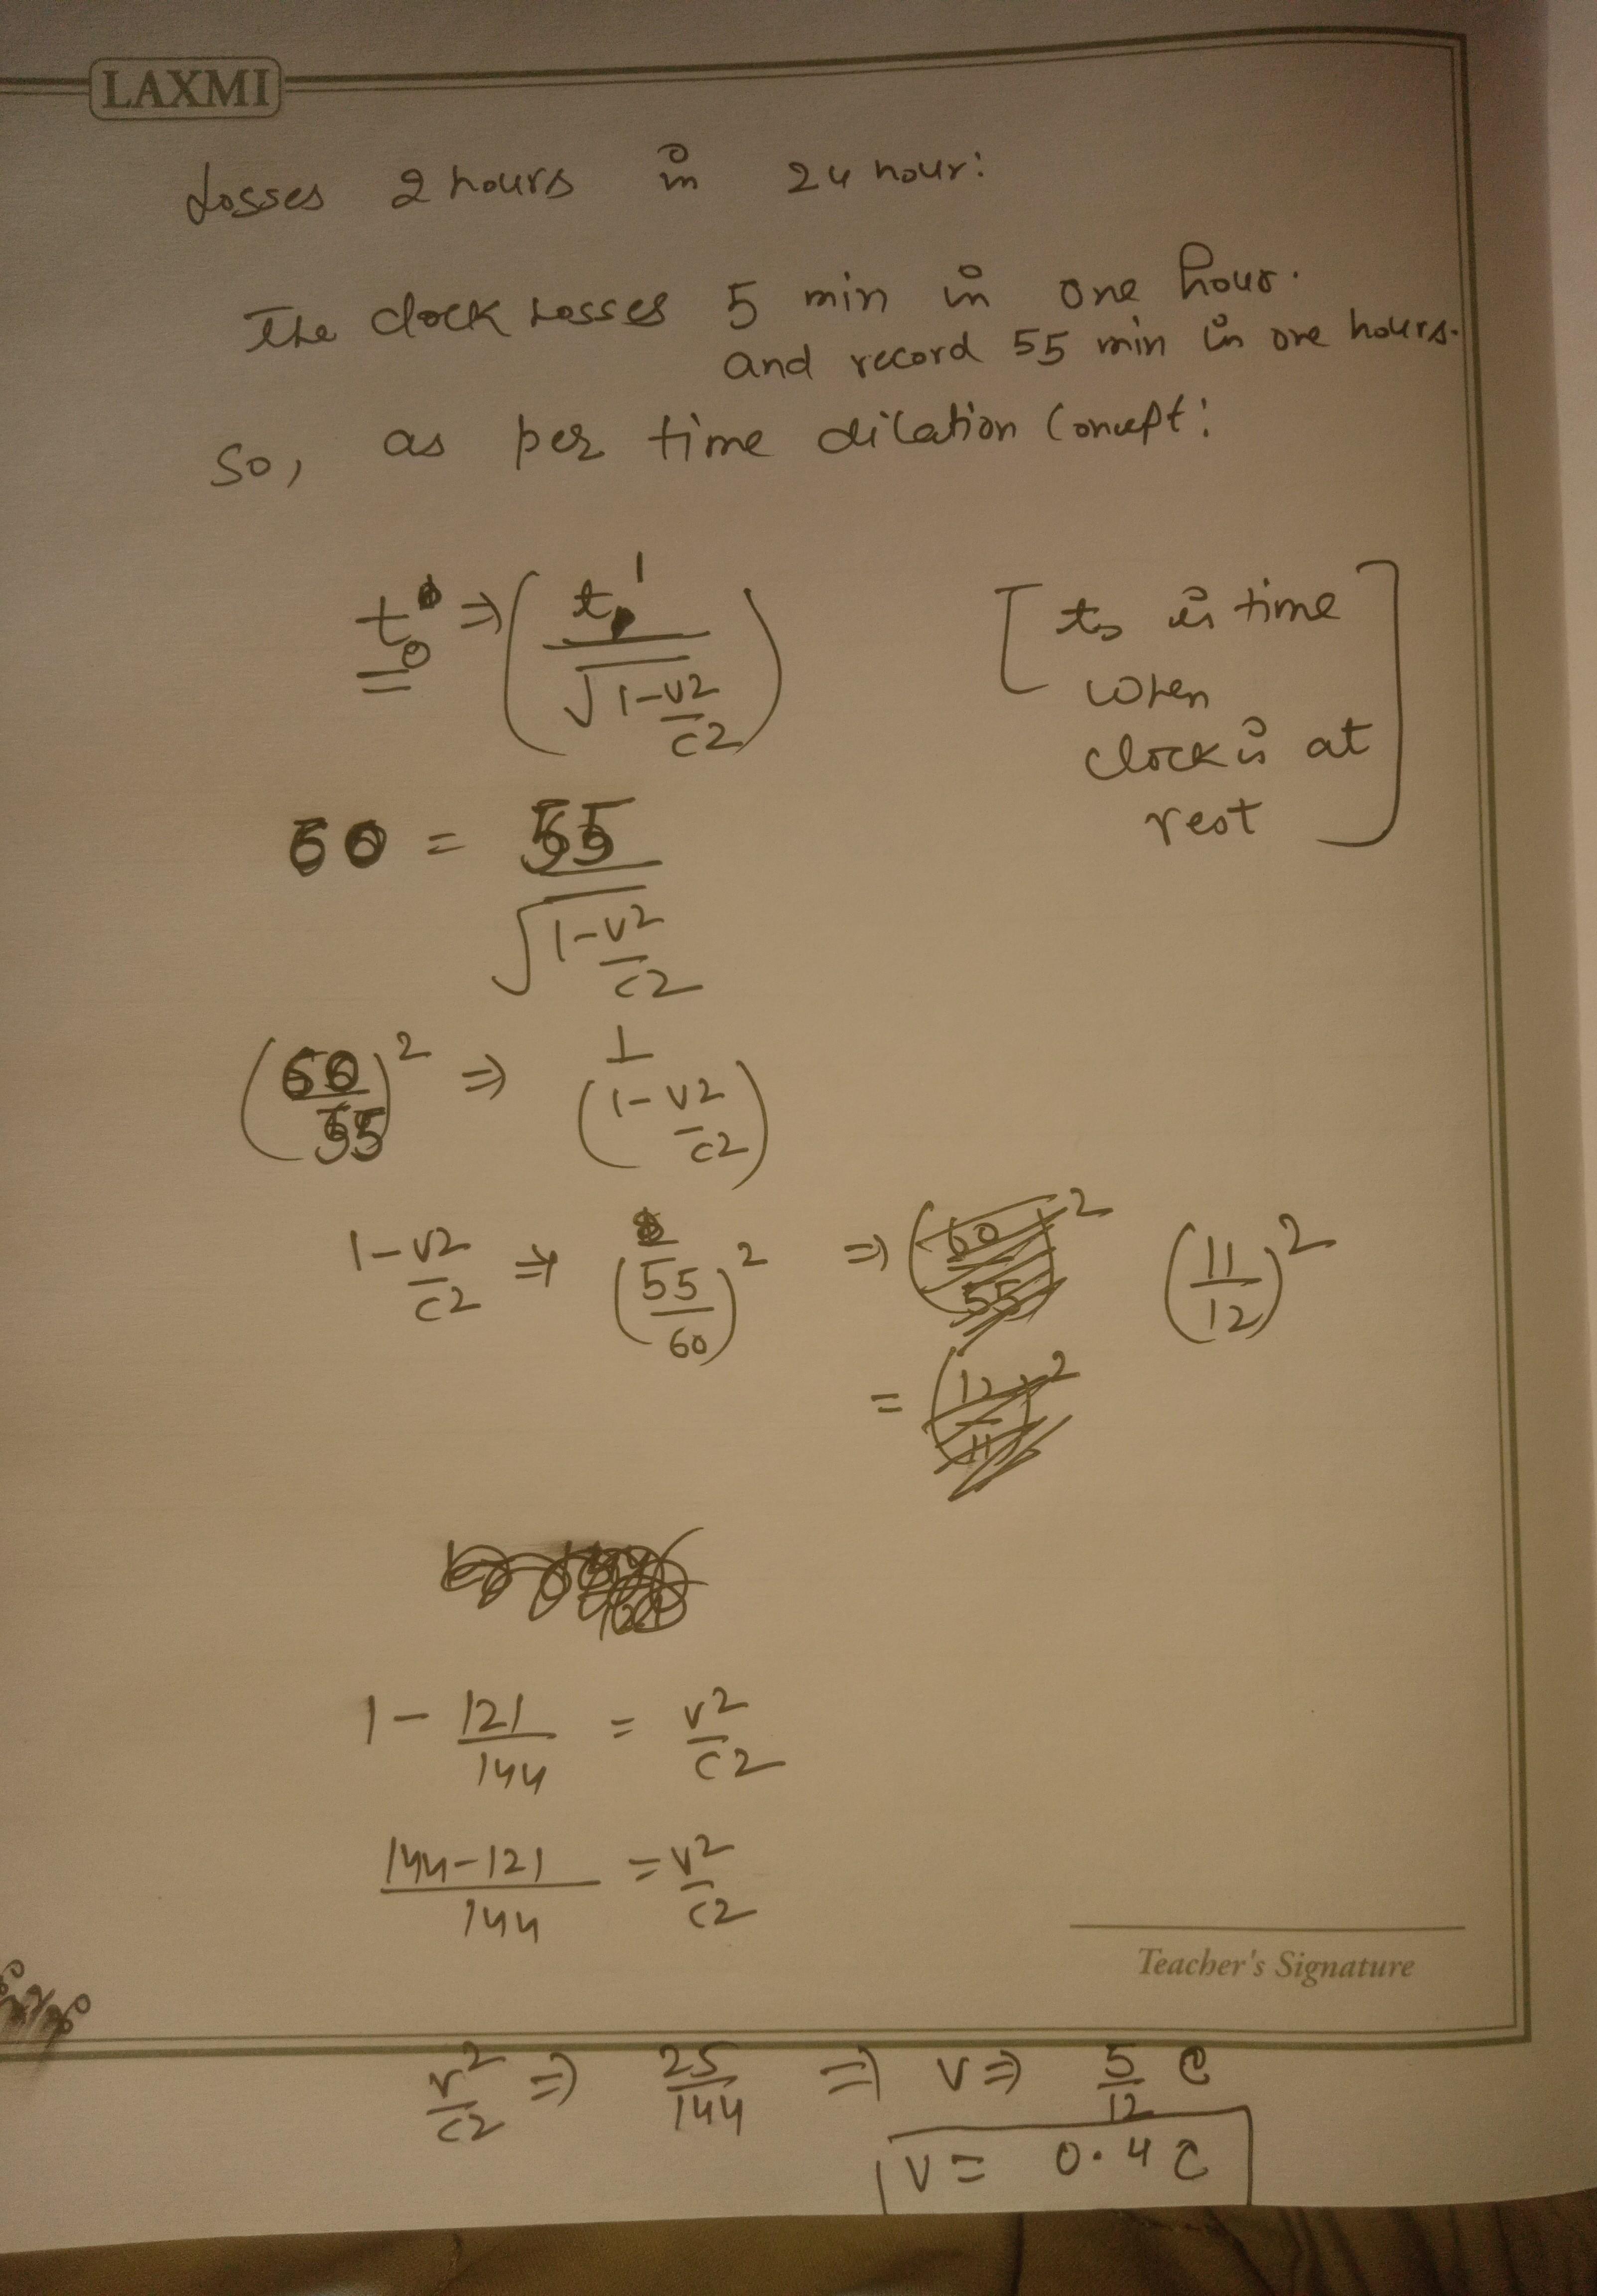 LAXMI
Losses 2 hours in 24 hour:
The clock Losses 5 min in one hour.
and record 55 min in one hours.
So, as per time dilation Concept:
t₀ ⇒ (t' / √(1-v2/c2)) [to is time
when
clock is at
rest]
60 = 55 / √(1-v2/c2)
(60/55)² ⇒ 1 / (1-v2/c2)
1-v2/c2 ⇒ (55/60)² ⇒ (11/12)²
=
1 - 121/144 = v2/c2
144-121 / 144 = v2/c2
Teacher's Signature
v2/c2 ⇒ 25/144 ⇒ v ⇒ 5/12 c
v = 0.4 c